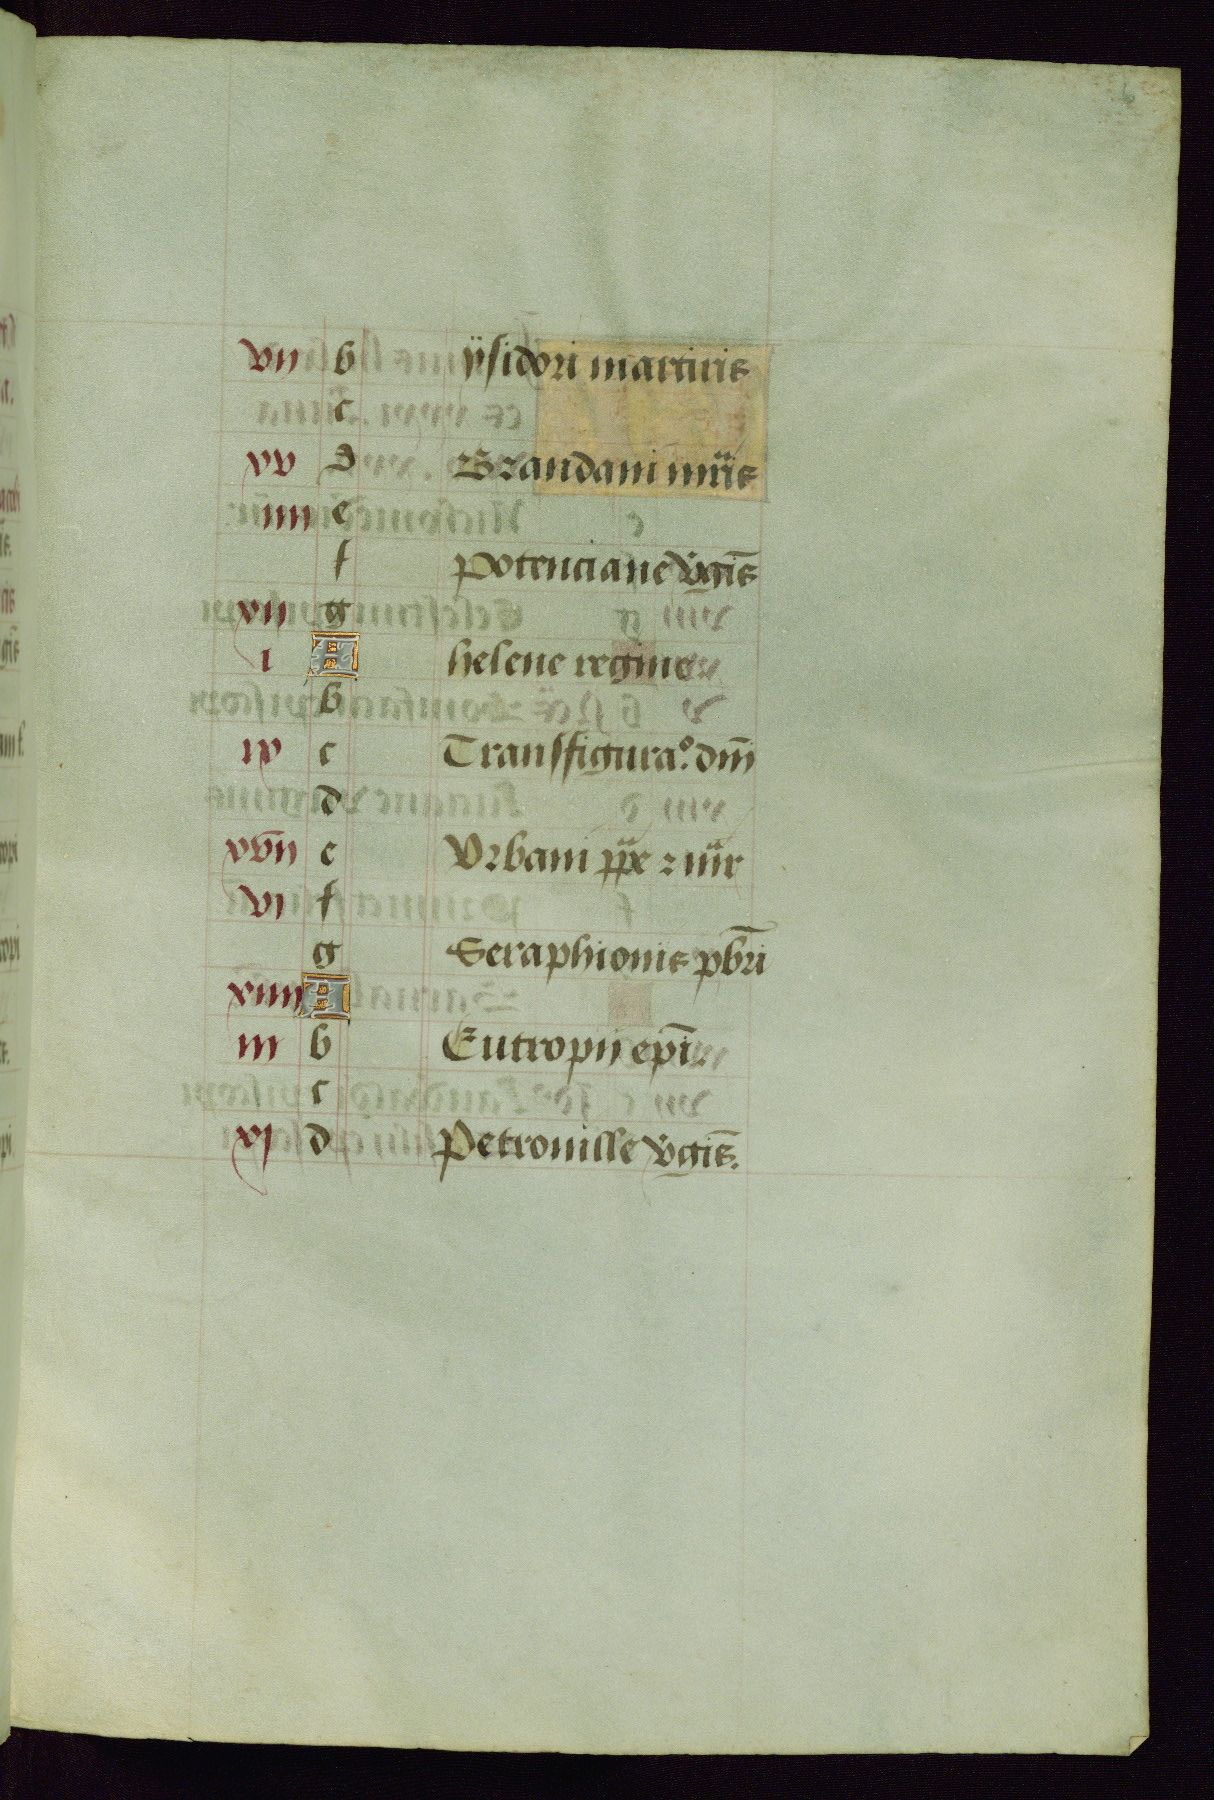 vii b ÿsidori martiris
c
xv d Brandani mr̄is
iiii e
f Potenciane v̄gis
xii g
i A helene regine
b
ix c Transfigurao. dm̄
d
xvii e Vrbani pp̄e 2 mr̄
vi f
g Seraphionis pbr̄i
xiiii A
iii b Eutropii ep̄i.
c
xi d Petronille v̄gis.